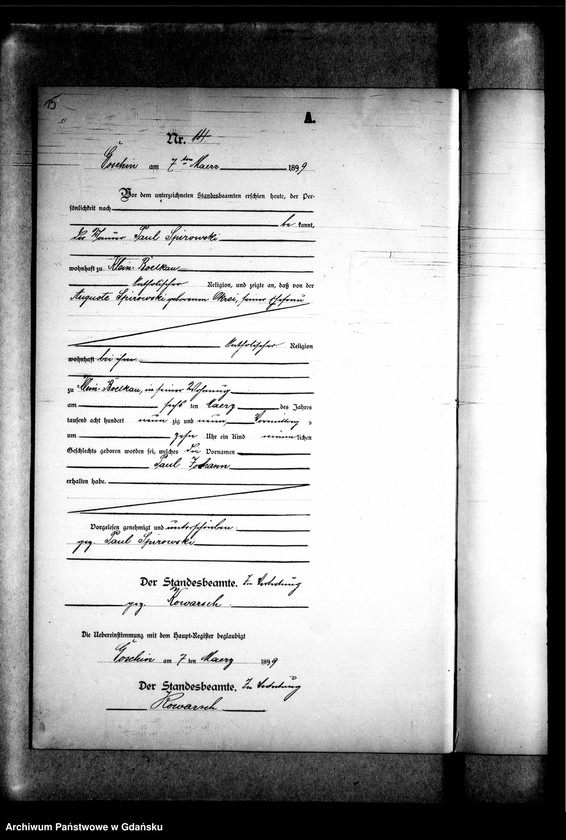 15
A.
Nr. 14
Löschin am 7ten Maerz 1899
Vor dem unterzeichneten Standesbeamten erschien heute, der Per-
sönlichkeit nach
be kannt,
der Paul Spirowski
wohnhaft zu Klein-Boelkau
katholischer Religion, und zeigte an, daß von der
Auguste Spirowski geborenen Okrei, seiner Ehefrau
katholischer Religion
wohnhaft bei ihm
zu Klein-Boelkau, in seiner Wohnung
am sechs ten Maerz des Jahres
tausend acht hundert neun zig und neun, Vormittag s
um zehn Uhr ein Kind männlichen
Geschlechts geboren worden sei, welches die Vornamen
Paul Johann
erhalten habe.
Vorgelesen genehmigt und unterschrieben
gez. Paul Spirowski
Der Standesbeamte. In Vertretung
gez. Kowarsch
Die Uebereinstimmung mit dem Haupt-Register beglaubigt
Löschin am 7 ten Maerz 1899
Der Standesbeamte. In Vertretung
Kowarsch
Archiwum Państwowe w Gdańsku